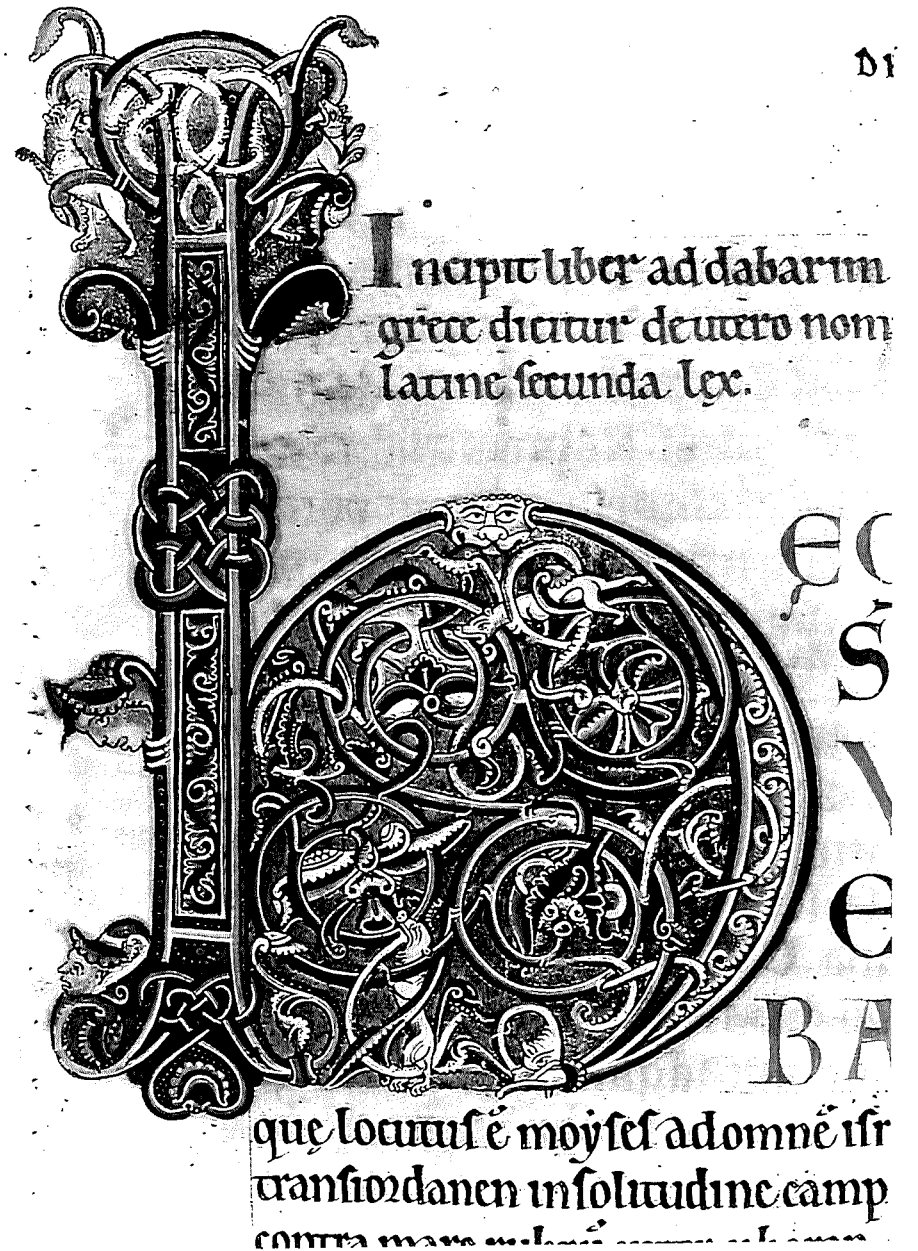 DI
Incipit liber addabarim
grece dicitur deutero nom
latine secunda lęx.
H
ĘC
S
V
E
BA
quę locutus ē moẏses ad omnē isr
transiordanen in solitudine camp
contra mare rubrū